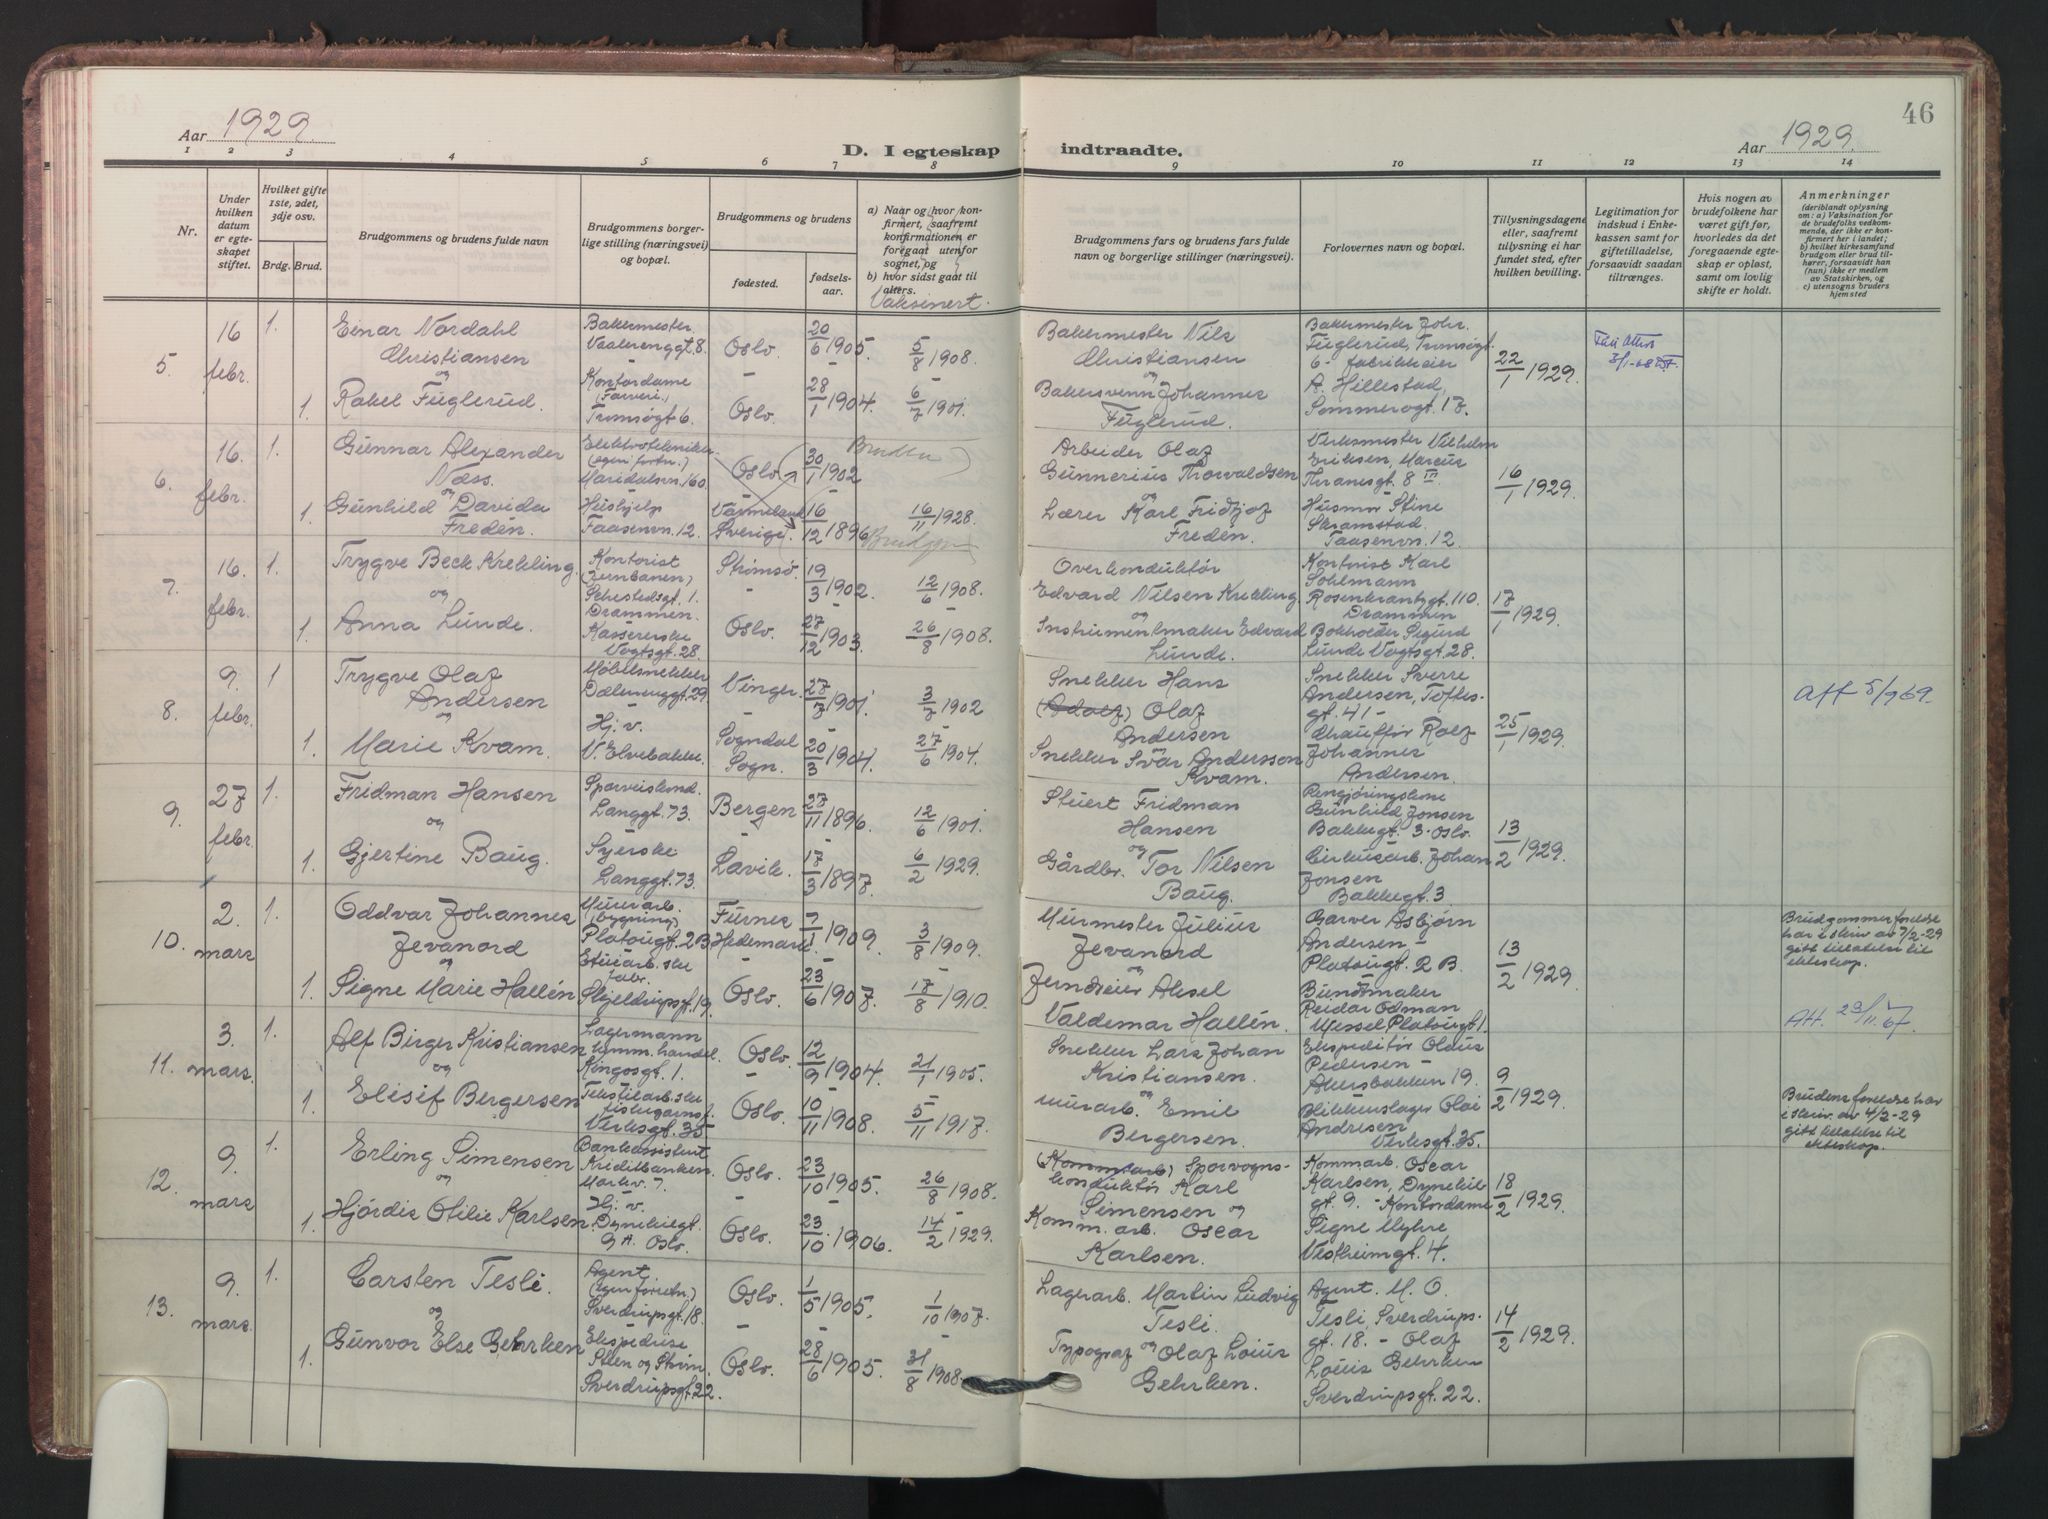 Aar 1929.
D. I egteskap
1 2 3 4 5 6 7 8
Nr.
Under hvilken datum er egteskapet stiftet.
Hvilket gifte 1ste, 2det, 3dje osv.
Brdg. Brud.
Brudgommens og brudens fulde navn
Brudgommens borgerlige stilling (næringsvei) og bopæl.
Brudgommens og brudens
fødested. fødselsaar.
a) Naar og hvor konfirmert, saafremt konfirmationen er foregaat utenfor sognet, og
b) hvor sidst gaat til alters.
Vaksinert.
5. 16 febr. 1. Einar Nordahl Christiansen Bakermester Vaalerenggt. 8. Oslo. 20/6 1905. 5/8 1908.
og
1. Rakel Fuglerud. Kontordame (Farveri) Tromsøgt. 6. Oslo. 28/1 1904. 6/7 1901.
6. 16. febr. 1. Gunnar Alexander Næss. Elektrotekniker (egen forrtn.) Maridalsvn. 160. Oslo. 30/1 1902 Bruden
og
1. Gunhild Davida Fredén. Hushjelp Taasenvn. 12. Värmeland Sverige. 16/12 1896 16/11 1928. Brudgom
7. 16. febr. 1. Trygve Beck Krekling. Kontorist (Jernbanen) Sehestedsgt. 1. Drammen. Strømsø. 19/3 1902. 12/6 1908.
og
1. Anna Lunde. Kassererske Vogtsgt. 28. Oslo. 27/12 1903. 26/8 1908.
8. 9. febr. 1 Trygve Olaf Andersen Møbelsnekker Dælenenggt. 29 Vinger. 27/7 1901. 3/7 1902
og
1. Marie Kvam. Hj. v. V. Elvebakke. Sogndal Sogn. 20/3 1904. 27/6 1904.
9. 27 febr. 1. Fridman Hansen Sporveiskond. Langgt. 73. Bergen 27/11 1896. 12/6 1901.
og
1. Gjertine Baug. Syerske Langgt. 73. Lavik. 17/3 1897. 6/2 1929.
10. 2. mars 1. Oddvar Johannes Jevanord Murerarb. (bygning) Platougt. 2 B Furnes Hedemark. 7/1 1909. 3/8 1909.
og
1. Signe Marie Hallén Etuiarb.ske fabr. Skjeldrupsgt. 19. Oslo. 23/6 1907. 17/8 1910.
11. 3. mars. 1. Alf Birger Kristiansen Lagermann Kingosgt. 1. Oslo. 12/9 1904. 21/1 1905.
og
1. Elisif Bergersen Tekstilarb.ske Verksgt. 35 Oslo. 10/11 1908. 5/11 1917.
12. 9. mars 1. Erling Simensen Bankassistent Kreditbanken Markv. 7. Oslo. 23/10 1905. 26/8 1908.
og
1. Hjördis Otilie Karlsen Hj. v. Dynekilgt. 9 A. Oslo. Oslo. 23/10 1906. 14/2 1929.
13. 9. mars. 1. Carsten Tesli. Agent (egen forretn.) Sverdrupsgt. 18 Oslo. 1/5 1905. 1/10 1907.
og
1. Gunvor Else Gehrken Ekspedrise Steen og Strøm Sverdrupsgt. 22. Oslo. 28/6 1905. 31/8 1908.
46
indtraadte. Aar 1929.
9 10 11 12 13 14
Brudgommens fars og brudens fars fulde navn og borgerlige stillinger (næringsvei).
Forlovernes navn og bopæl.
Tillysningsdagene eller, saafremt tillysning ei har fundet sted, efter hvilken bevilling.
Legitimation for indskud i Enkekassen samt for giftetilladelse, forsaavidt saadan tiltrænges.
Hvis nogen av brudefolkene har været gift før, hvorledes da det foregaaende egteskap er opløst, samt om lovlig skifte er holdt.
Anmerkninger
(deriblandt oplysning om: a) Vaksination for de brudefolks vedkommende, der ikke er konfirmert her i landet; b) hvilket kirkesamfund brudgom eller brud tilhører, forsaavidt han (hun) ikke er medlem av Statskirken, og c) utensogns bruders hjemsted
Bakermester Nils Christiansen og Bakersvenn Johannes Fuglerud. Bakermester Johs. Fuglerud, Tromsøgt. 6 - fabrikkeier A. Hillestad, Sommerogt. 17. 22/1 1929.
Arbeider Olaf Gunnerius Thorvaldsen og Lærer Karl Fridtjof Fredén. Verksmester Vilhelm Eriksen, Marcus Thranesgt. 8 III Husmor Stine Skramstad. Taasenvn. 12. 16/1 1929.
Overkonduktør Edvard Nilsen Krekling. og Instrumentmaker Edvard Lunde. Kontorist Karl Sohlmann Rosenkrantzgt. 110. Drammen Bokholder Sigurd Lunde Vogtsgt. 28. 17/1 1929.
Snekker Hans (Adolf) Olaf Andersen og Snekker Ivar Andersson Kvam. Snekker Sverre Andersen, Toftes-gt. 41 - Chauffør Rolf Johannes Andersen. 25/1 1929. Att 5/9 69.
Stuert Fridman Hansen og Gårdbr. Tor Nilsen Baug. Rengjøringskone Gunhild Jonsen Bakkegt. 3. Oslo. Cirkusarb. Johan Jonsen Bakkegt. 3 13/2 1929.
Murmester Julius Jevanord og Jerndreier Aksel Valdemar Hallén. Garver Asbjørn Andersen - Platougt. 2 B. Buntmaker Reidar Odman Wessel Platougt. 1. 13/2 1929. Brudgommens foreldre har i skriv. av 7/2-29 gitt tillatelse til ekteskap.
Att. 23/11. 67.
Snekker Lars Johan Kristiansen. og Murarb. Emil Bergersen. Ekspeditør Olaus Pedersen - Akersbakken 19. Blikkenslager Olai Andresen Verksgt. 35. 9/2 1929. Brudens foreldre har i skriv. av 4/2-29 gitt tillatelse til ekteskap.
(Kommunearb) Sporvognskonduktør Karl Simensen og Komm. arb. Oscar Karlsen. Kommarb. Oscar Karlsen, Dynekilgt. 9 - Kontordame Signe Myhre Vestheimgt. 4. 18/2 1929.
Lagerarb. Martin Ludvig Tesli. og Typograf Olaf Louis Gehrken. Agent. M. O. Tesli, Sverdrupsgt. 18. - Olaf Louis Gehrken Sverdrupsgt. 22. 14/2 1929.